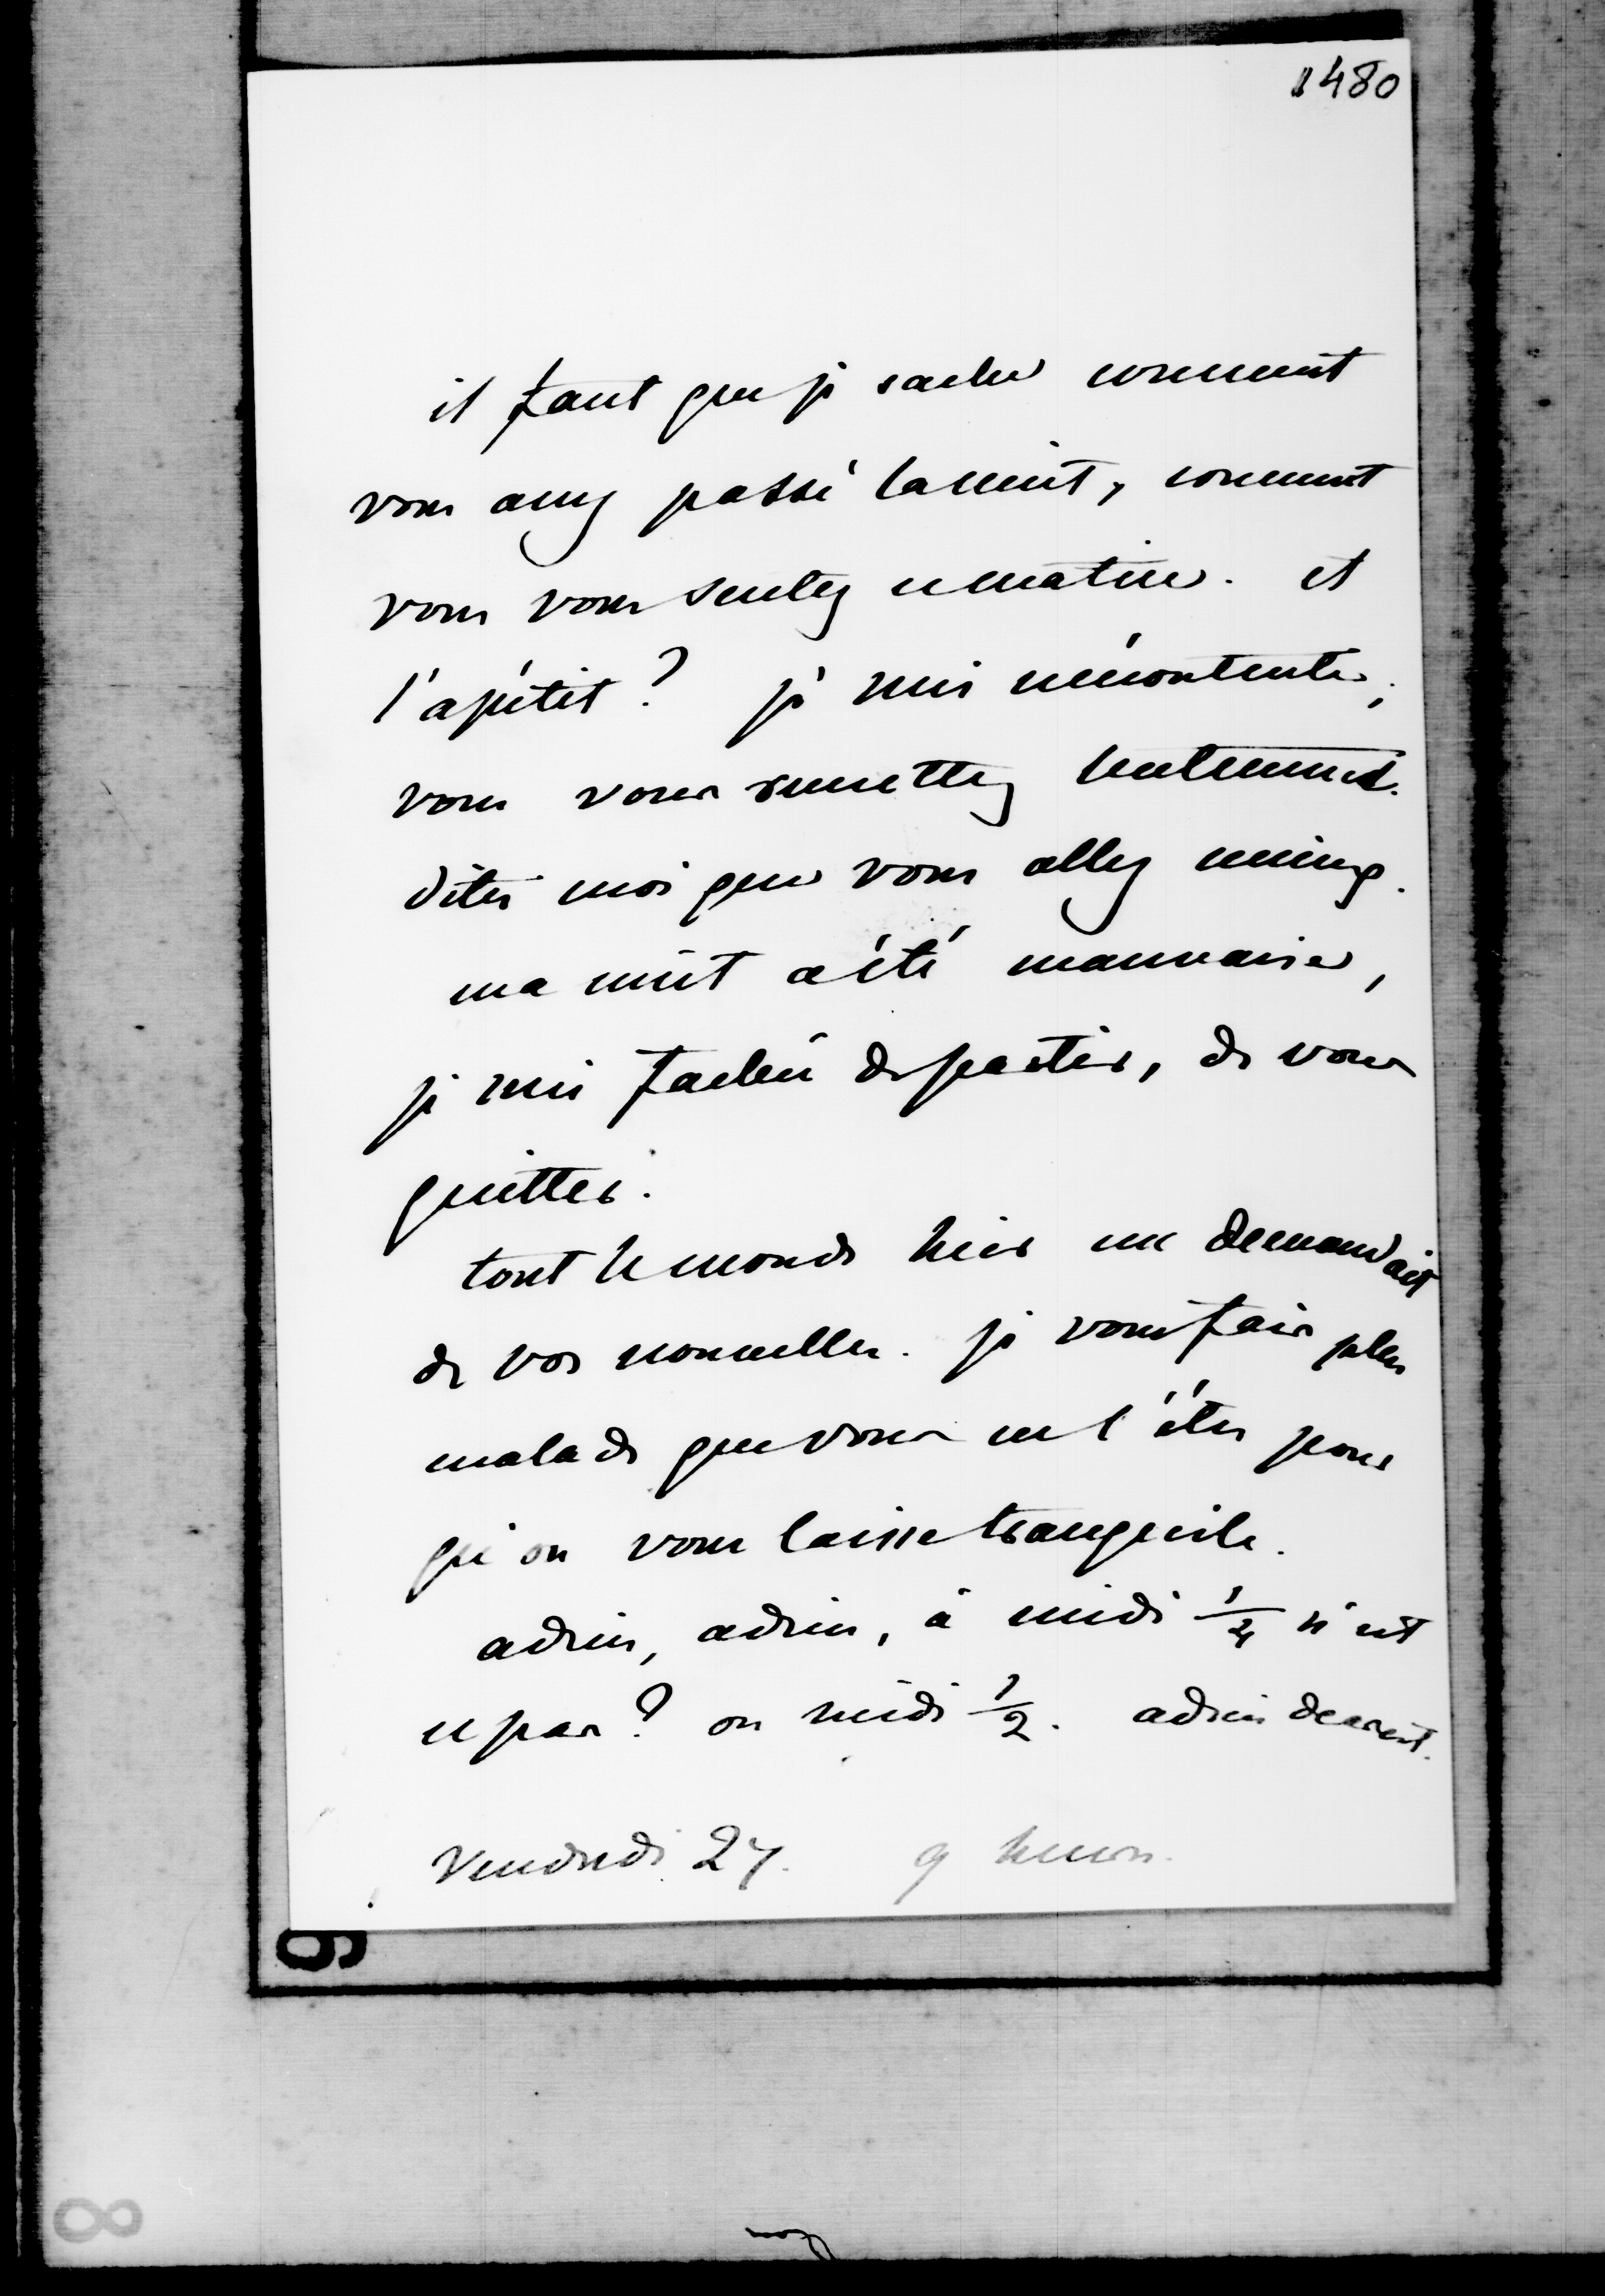 1480
il faut que je sache comment
vous avez passé la nuit, comment
vous vous sentez ce matin. et
l'apétit ? je suis mécontente ;
vous vous remettez lentement.
dites moi que vous allez mieux.
ma nuit a été mauvaise,
je suis fachée de partir, de vous
quitter.
tout le monde hier me demandait
de vos nouvelles. je vous fais plus
malade que vous ne l'êtes pour
qu'on vous laisse tranquile.
adieu, adieu, à midi 1/4 n'est
ce pas ? ou midi 1/2. adieu dearest.
Vendredi 27. 9 heures.
8